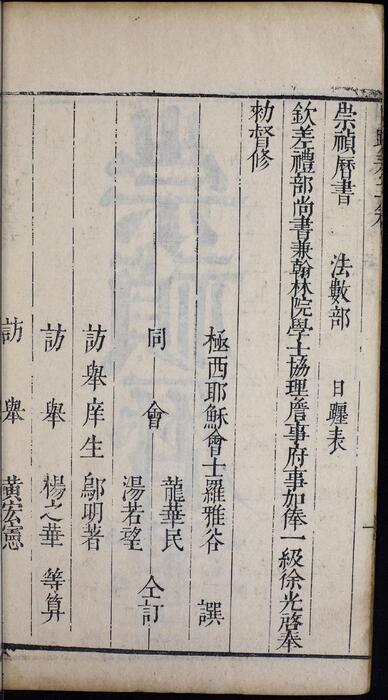 崇禎曆書 法數部 日躔表
欽差禮部尚書兼翰林院學士協理詹事府事加俸一級徐光啓奉
勑督修
極西耶穌會士羅雅谷 譔
龍華民
同會 仝訂
湯若望
訪舉庠生鄔明著
訪舉 楊之華 等算
訪舉 黃宏憲